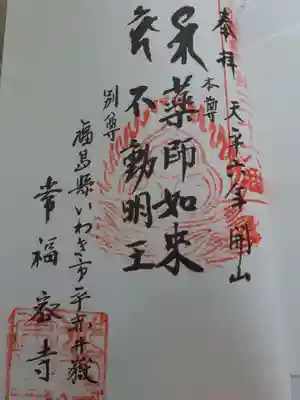 奉拝 天平六年開山
本尊
薬師如来
不動明王
別尊
福島縣いわき市平赤井嶽
常福寺